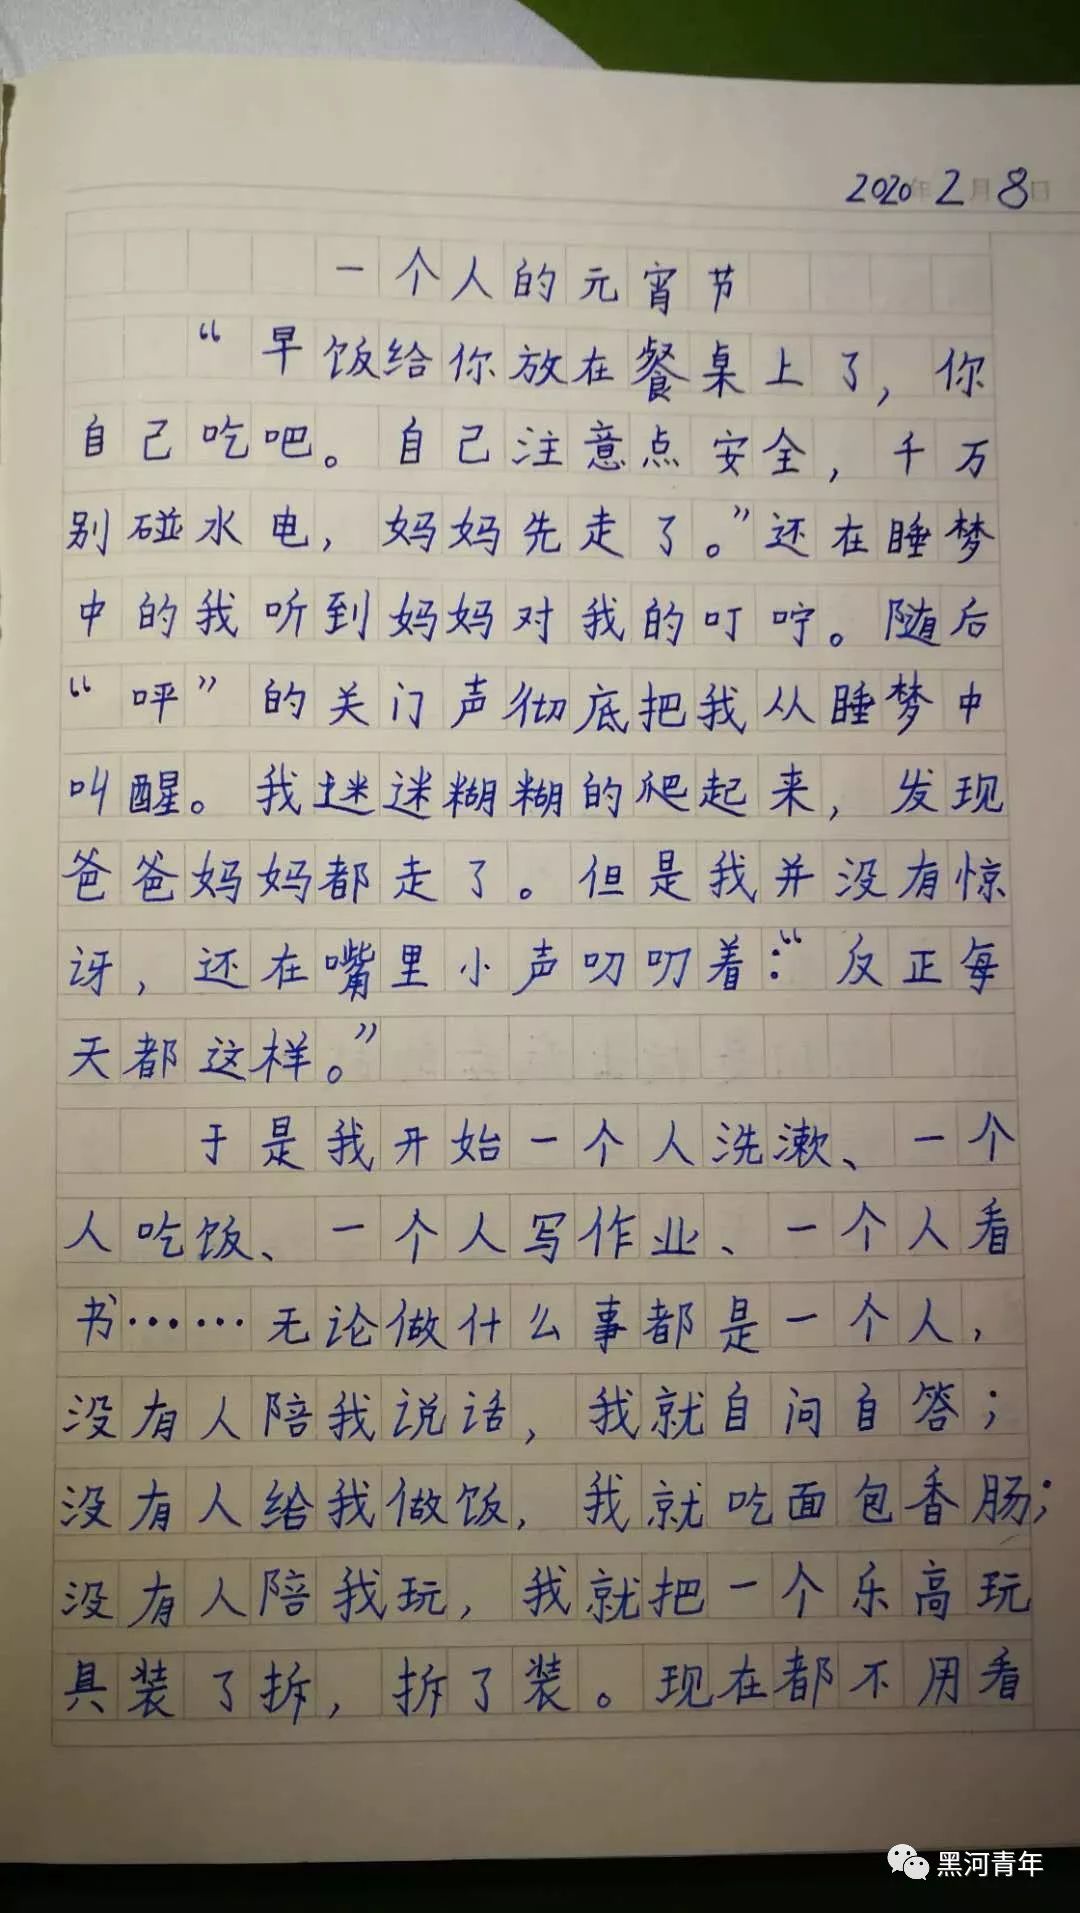 2020年2月8日
一个人的元宵节
“早饭给你放在餐桌上了，你
自己吃吧。自己注意点安全，千万
别碰水电，妈妈先走了。”还在睡梦
中的我听到妈妈对我的叮咛。随后
“呯”的关门声彻底把我从睡梦中
叫醒。我迷迷糊糊的爬起来，发现
爸爸妈妈都走了。但是我并没有惊
讶，还在嘴里小声叨叨着：“反正每
天都这样。”
于是我开始一个人洗漱、一个
人吃饭、一个人写作业、一个人看
书……无论做什么事都是一个人，
没有人陪我说话，我就自问自答；
没有人给我做饭，我就吃面包香肠；
没有人陪我玩，我就把一个乐高玩
具装了拆，拆了装。现在都不用看
黑河青年